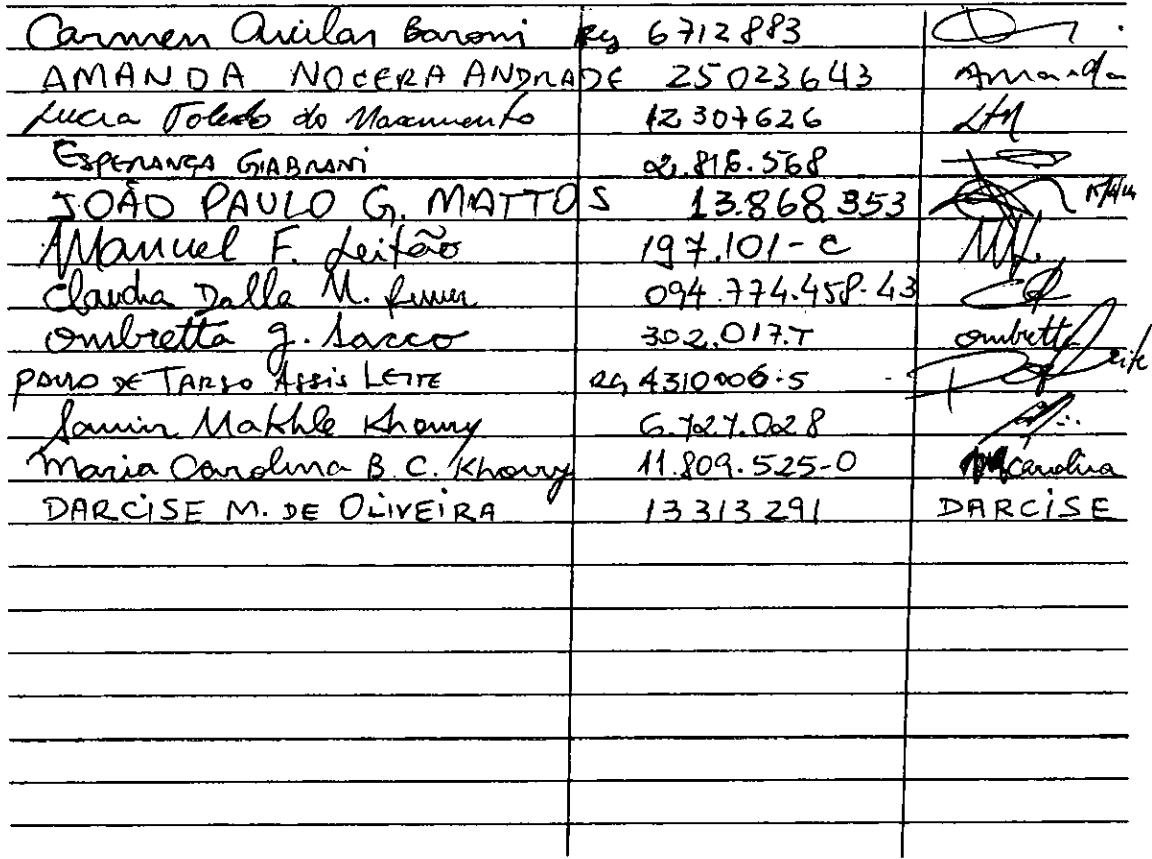 Carmen Baroni Rg 6712883
AMANDA NOCERA ANDRADE 25023643 Amanda
Lucia Toledo do Nascimento 12307626
ESPERANÇA GIABRANI 2.816.568
JOÃO PAULO G. MATTOS 13.868.353
Manuel F. Leitão 197.101-C
Claudia Dalla M. 094.774.458-43
Ombretta g. Sacco 302.017.T ombretta
PAULO DE TARSO ASSIS LEITE RG 4310006-5
Samir Makhle Khoury 6.727.028
Maria Carolina B. C. Khoury 11.809.525-0 MCarolina
DARCISE M. DE OLIVEIRA 13313291 DARCISE